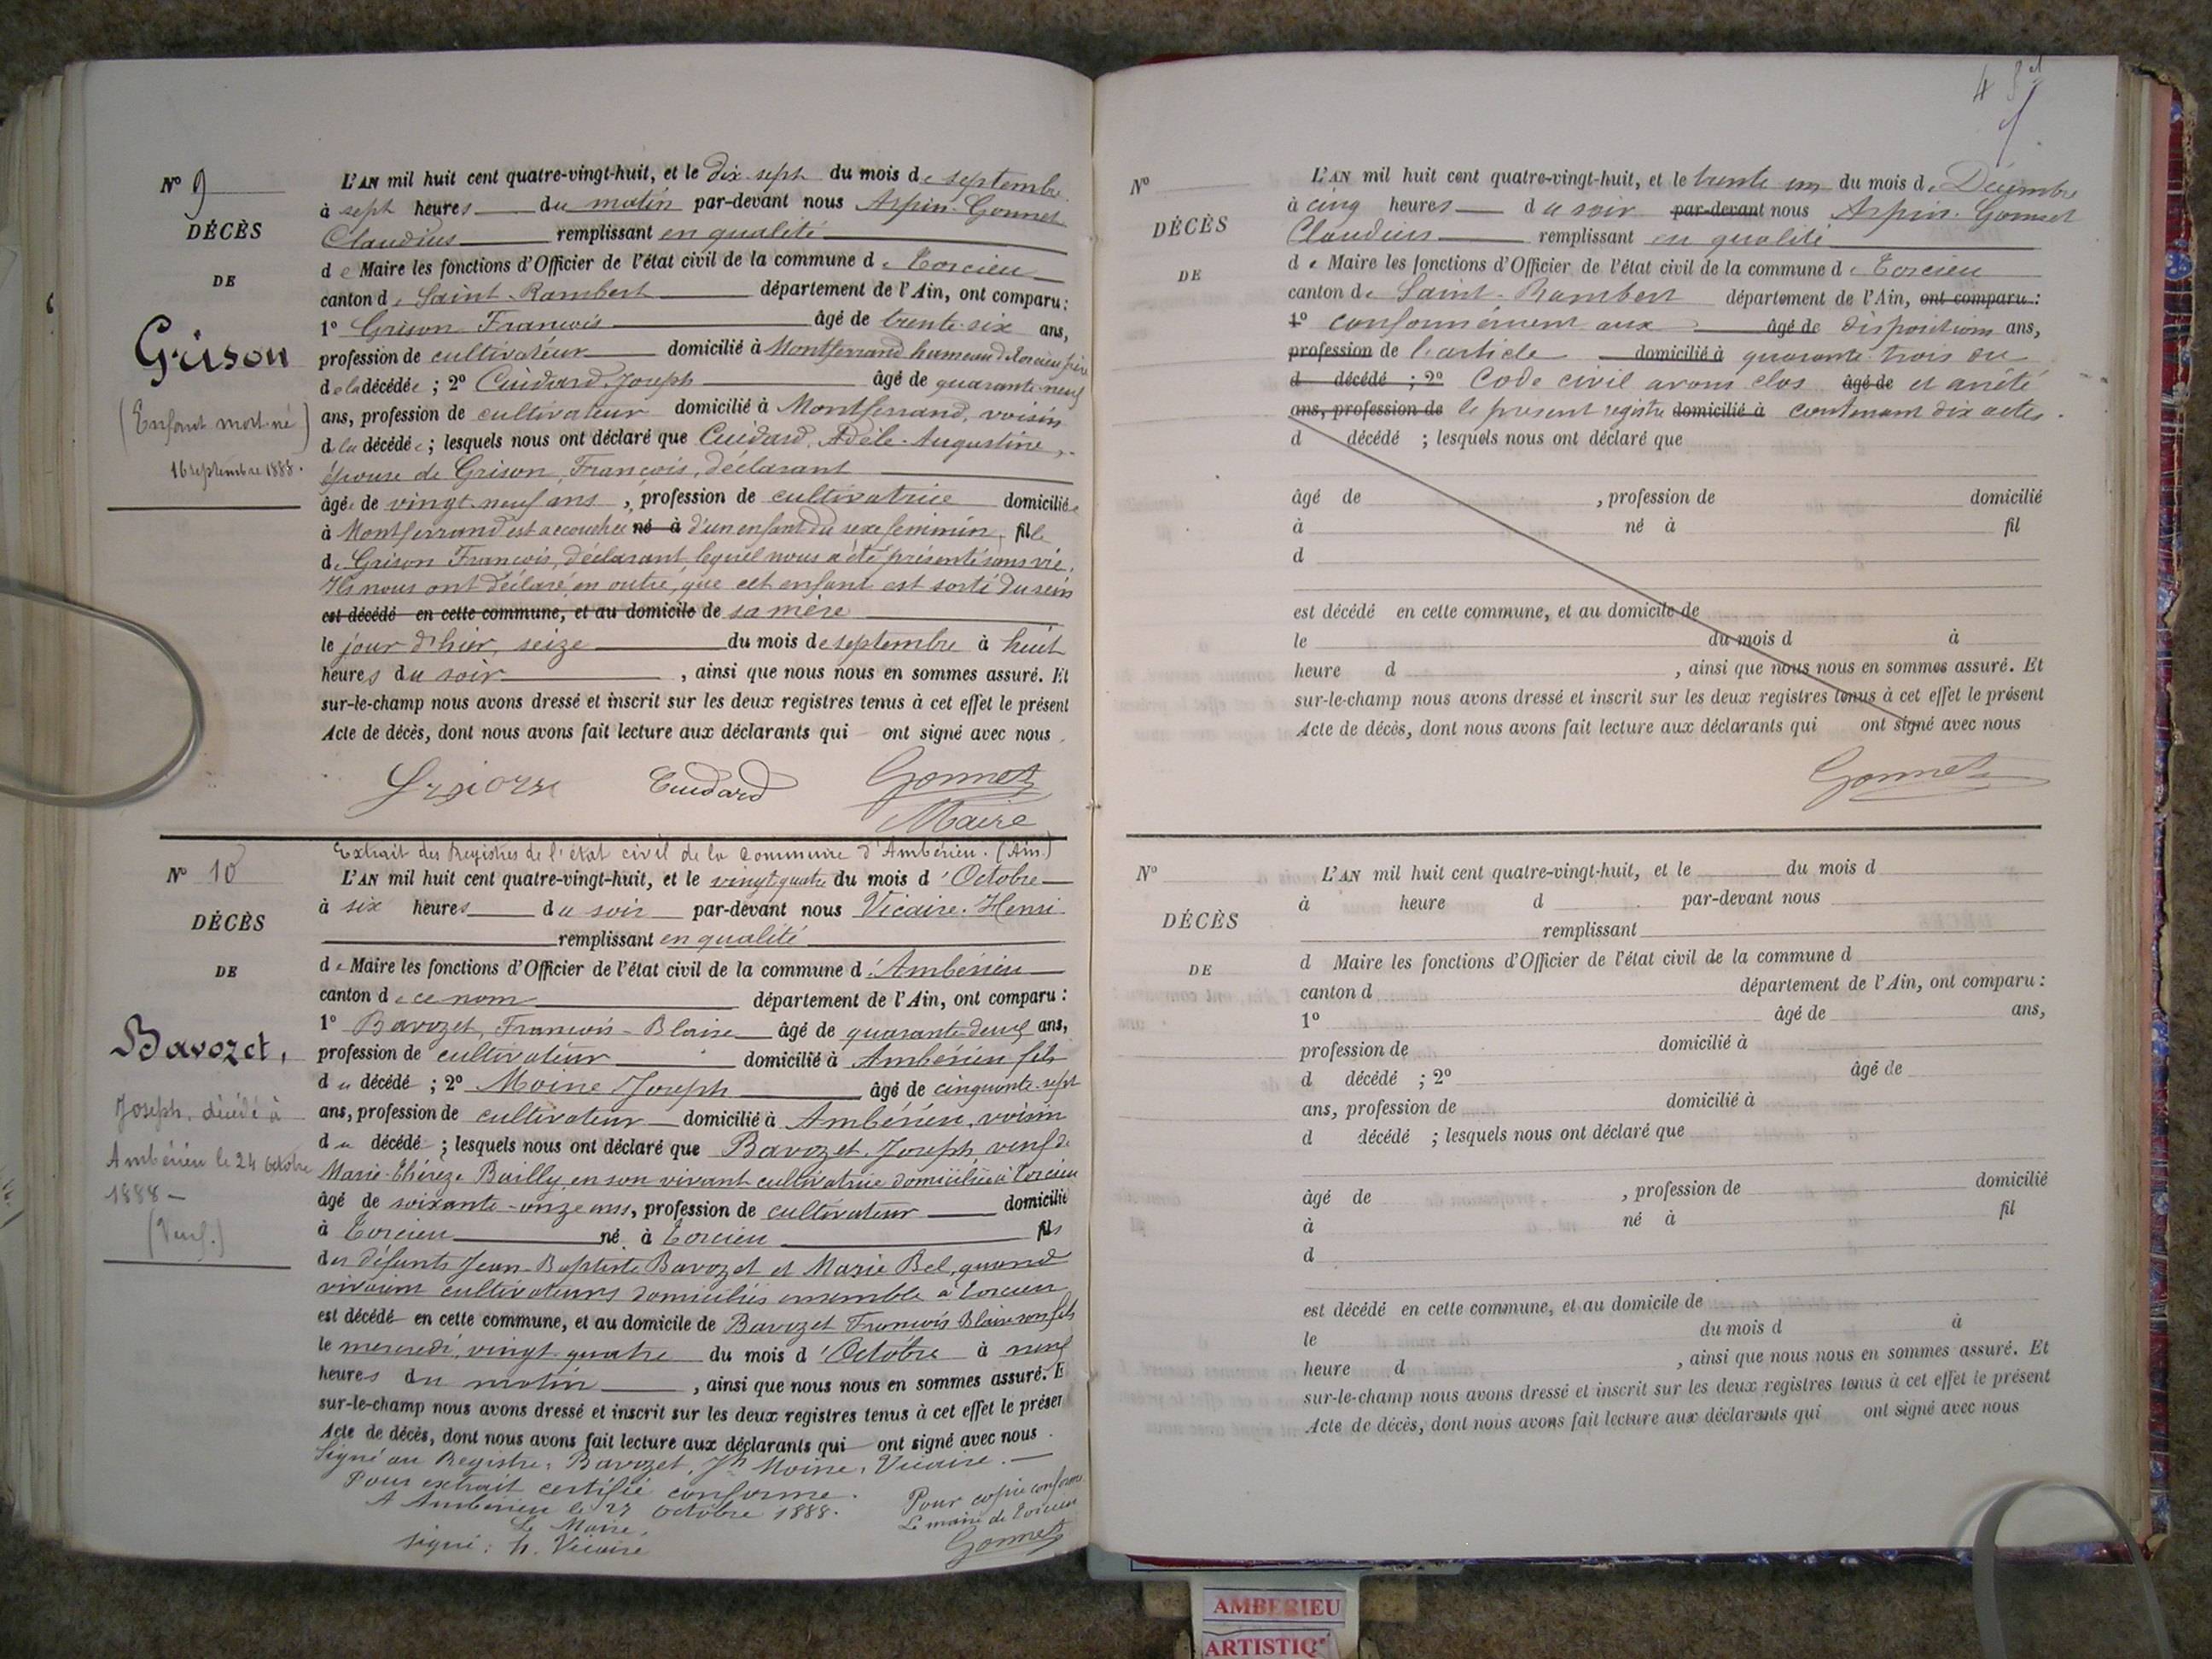 N° 9
DÉCÈS
DE
Grison
(Enfant mort-né)
16 septembre 1888.
L'AN mil huit cent quatre-vingt-huit, et le dix-sept du mois de septembre
à sept heures du matin par-devant nous Arpin-Gonnet
Claudius remplissant en qualité
de Maire les fonctions d'Officier de l'état civil de la commune de Torcieu
canton de Saint-Rambert département de l'Ain, ont comparu :
1° Grison François âgé de trente-six ans,
profession de cultivateur domicilié à Montferrand hameau de Torcieu père
de la décédée ; 2° Cuidard Joseph âgé de quarante-neuf
ans, profession de cultivateur domicilié à Montferrand, voisin
de la décédée ; lesquels nous ont déclaré que Cuidard, Adèle-Augustine,
épouse de Grison, François, déclarant
âgée de vingt-neuf ans, profession de cultivatrice domiciliée
à Montferrand est accouchée né à d'un enfant du sexe féminin, fille
de Grison François, déclarant, lequel nous a été présenté sans vie.
Ils nous ont déclaré, en outre, que cet enfant est sorti du sein
est décédé en cette commune, et au domicile de sa mère
le jour d'hier, seize du mois de septembre à huit
heures du soir, ainsi que nous nous en sommes assuré. Et
sur-le-champ nous avons dressé et inscrit sur les deux registres tenus à cet effet le présent
Acte de décès, dont nous avons fait lecture aux déclarants qui ont signé avec nous.
Grison Cuidard Gonnet
Maire
N° 10
DÉCÈS
DE
Bavozet,
Joseph, décédé à
Ambérieu le 24 octobre
1888 –
(Veuf.)
Extrait des Registres de l'état civil de la Commune d'Ambérieu. (Ain)
L'AN mil huit cent quatre-vingt-huit, et le vingt quatre du mois d'Octobre
à six heures du soir par-devant nous Vicaire Henri
remplissant en qualité
de Maire les fonctions d'Officier de l'état civil de la commune d'Ambérieu
canton de ce nom département de l'Ain, ont comparu :
1° Bavozet, François-Blaise âgé de quarante-deux ans,
profession de cultivateur domicilié à Ambérieu fils
du décédé ; 2° Moine Joseph âgé de cinquante-sept
ans, profession de cultivateur domicilié à Ambérieu, voisin
du décédé ; lesquels nous ont déclaré que Bavozet, Joseph, veuf de
Marie-Thérèze Bailly, en son vivant cultivatrice domiciliée à Torcieu
âgé de soixante-onze ans, profession de cultivateur domicilié
à Torcieu né à Torcieu fils
des défunts Jean-Baptiste Bavozet et Marie Bel, quand
vivaient cultivateurs domiciliés ensemble à Torcieu
est décédé en cette commune, et au domicile de Bavozet François Blaise son fils
le mercredi, vingt-quatre du mois d'Octobre à neuf
heures du matin, ainsi que nous nous en sommes assuré. E
sur-le-champ nous avons dressé et inscrit sur les deux registres tenus à cet effet le préser
Acte de décès, dont nous avons fait lecture aux déclarants qui ont signé avec nous.
Signé au Registre: Bavozet, Jh Moine, Vicaire.
Pour extrait certifié conforme.
A Ambérieu le 27 Octobre 1888.
Le Maire,
signé: h. Vicaire
Pour copie conforme
Le maire de Torcieu
Gonnet
48
N°
DÉCÈS
DE
L'AN mil huit cent quatre-vingt-huit, et le trente un du mois de Décembre
à cinq heures du soir par-devant nous Arpin-Gonnet
Claudius remplissant en qualité
de Maire les fonctions d'Officier de l'état civil de la commune de Torcieu
canton de Saint-Rambert département de l'Ain, ont comparu :
1° conformément aux âgé de dispositions ans,
profession de l'article domicilié à quarante-trois du
d décédé ; 2° Code civil avons clos âgé de et arrêté
ans, profession de le présent registre domicilié à contenant dix actes.
d décédé ; lesquels nous ont déclaré que
âgé de , profession de domicilié
à né à fil
d
est décédé en cette commune, et au domicile de
le du mois d à
heure d , ainsi que nous nous en sommes assuré. Et
sur-le-champ nous avons dressé et inscrit sur les deux registres tenus à cet effet le présent
Acte de décès, dont nous avons fait lecture aux déclarants qui ont signé avec nous
Gonnet
N°
DÉCÈS
DE
L'AN mil huit cent quatre-vingt-huit, et le du mois d
à heure d par-devant nous
remplissant
d Maire les fonctions d'Officier de l'état civil de la commune d
canton d département de l'Ain, ont comparu :
1° âgé de ans,
profession de domicilié à
d décédé ; 2° âgé de
ans, profession de domicilié à
d décédé ; lesquels nous ont déclaré que
âgé de , profession de domicilié
à né à fil
d
est décédé en cette commune, et au domicile de
le du mois d à
heure d , ainsi que nous nous en sommes assuré. Et
sur-le-champ nous avons dressé et inscrit sur les deux registres tenus à cet effet le présent
Acte de décès, dont nous avons fait lecture aux déclarants qui ont signé avec nous
AMBERIEU
ARTISTIQ